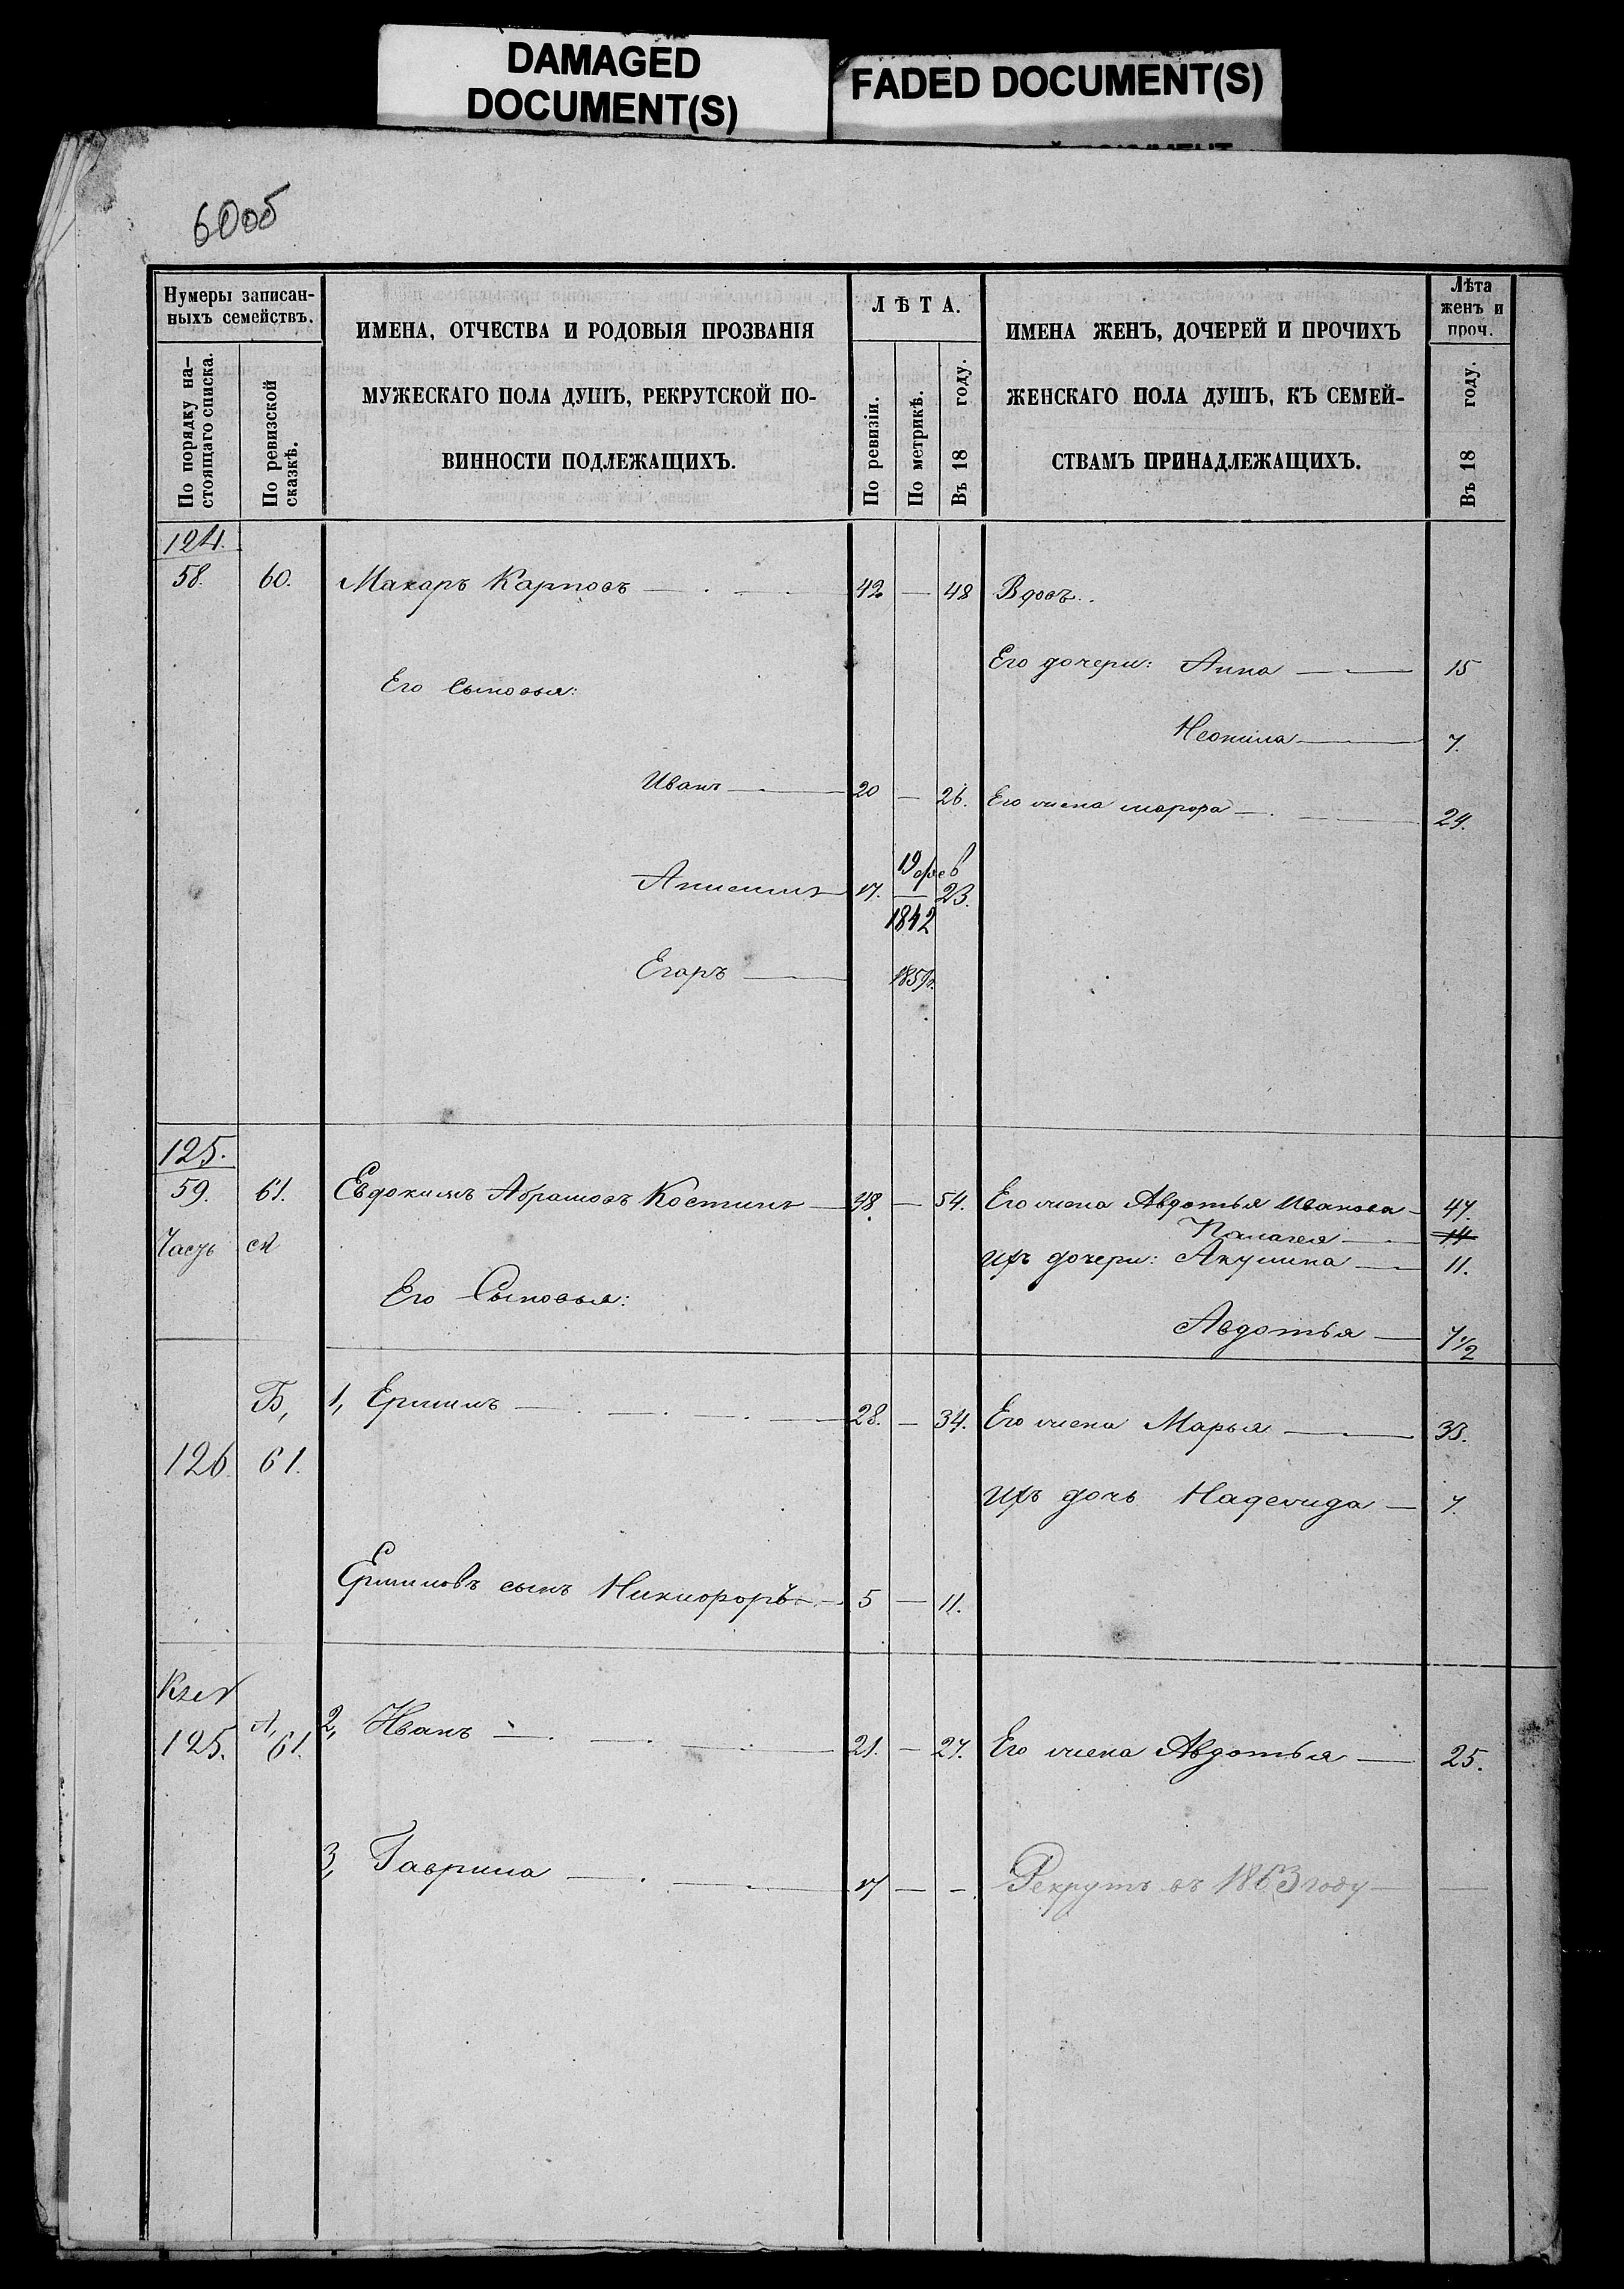 DAMAGED
DOCUMENT(S)
FADED DOCUMENT(S)
60об
Нумеры записан-
ныхъ семействъ.
По порядку на-
стоящаго списка.
По ревизской
сказкѣ.
ИМЕНА, ОТЧЕСТВА И РОДОВЫЯ ПРОЗВАНІЯ
МУЖЕСКАГО ПОЛА ДУШЪ, РЕКРУТСКОЙ ПО-
ВИННОСТИ ПОДЛЕЖАЩИХЪ.
ЛѢТА.
По ревизіи.
По метрикѣ.
Въ 18 году.
ИМЕНА ЖЕНЪ, ДОЧЕРЕЙ И ПРОЧИХЪ
ЖЕНСКАГО ПОЛА ДУШЪ, КЪ СЕМЕЙ-
СТВАМЪ ПРИНАДЛЕЖАЩИХЪ.
Лѣта
женъ и
проч.
Въ 18 году.
124.
58. 60. Макаръ Карповъ 42 — 48 Вдовъ.
Его дочери: Анна 15
Его Сыновья:
Неонила 7.
Иванъ 20 — 26. Его жена 24.
19 фев
Анисимъ 17. 23.
1842
Егоръ 1859г.
125.
59. 61. Евдокимъ Абрамовъ Костинъ 48 — 54. Его жена Авдотья Иванова 47.
Палагея 14
Ихъ дочери: Акулина 11.
Его Сыновья:
Авдотья 7 1/2
Б, 1, Ермилъ 28. — 34. Его жена Марья 33.
126. 61.
Ихъ дочь Надежида 7.
Ермиловъ сынъ Никифоръ 5 — 11.
К №
125. А, 61. 2, Иванъ 21. — 27. Его жена Авдотья 25.
3, Гаврила 17 — — Рекрутъ въ 1863 году